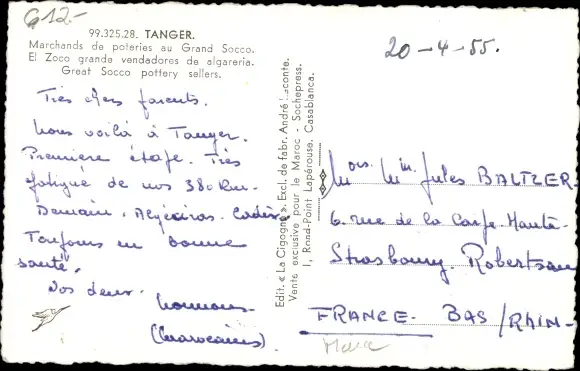 612.-
99.325.28. TANGER.
Marchands de poteries au Grand Socco.
El Zoco grande vendadores de algareria.
Great Socco pottery sellers.
20-4-55.
Très chers parents.
Nous voilà à Tanger.
Première étape. Très
fatigué de nos 380 km.
Demain, Algéciras. Cadix.
Toujours en bonne
santé.
Vos deux.
(Marocains)
Edit. « La Cigogne ». Excl. de fabr. André Leconte.
Vente exclusive pour le Maroc - Sochepress.
1, Rond-Point Lapérouse. Casablanca.
Mme Jules BALTZER.
6. rue de la Carpe Haute.
Strasbourg. Robertsau
FRANCE. BAS/RHIN-